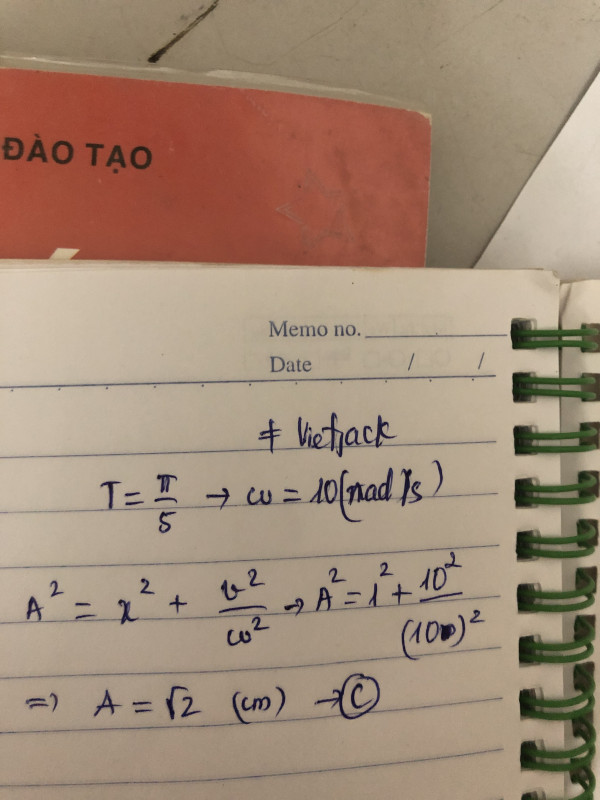 ĐÀO TẠO
Memo no.
Date / /
≠ Vietjack
T = π/5 → ω = 10 (rad/s)
A² = x² + v²/ω² → A² = 1² + 10²/(10)²
=> A = √2 (cm) → C